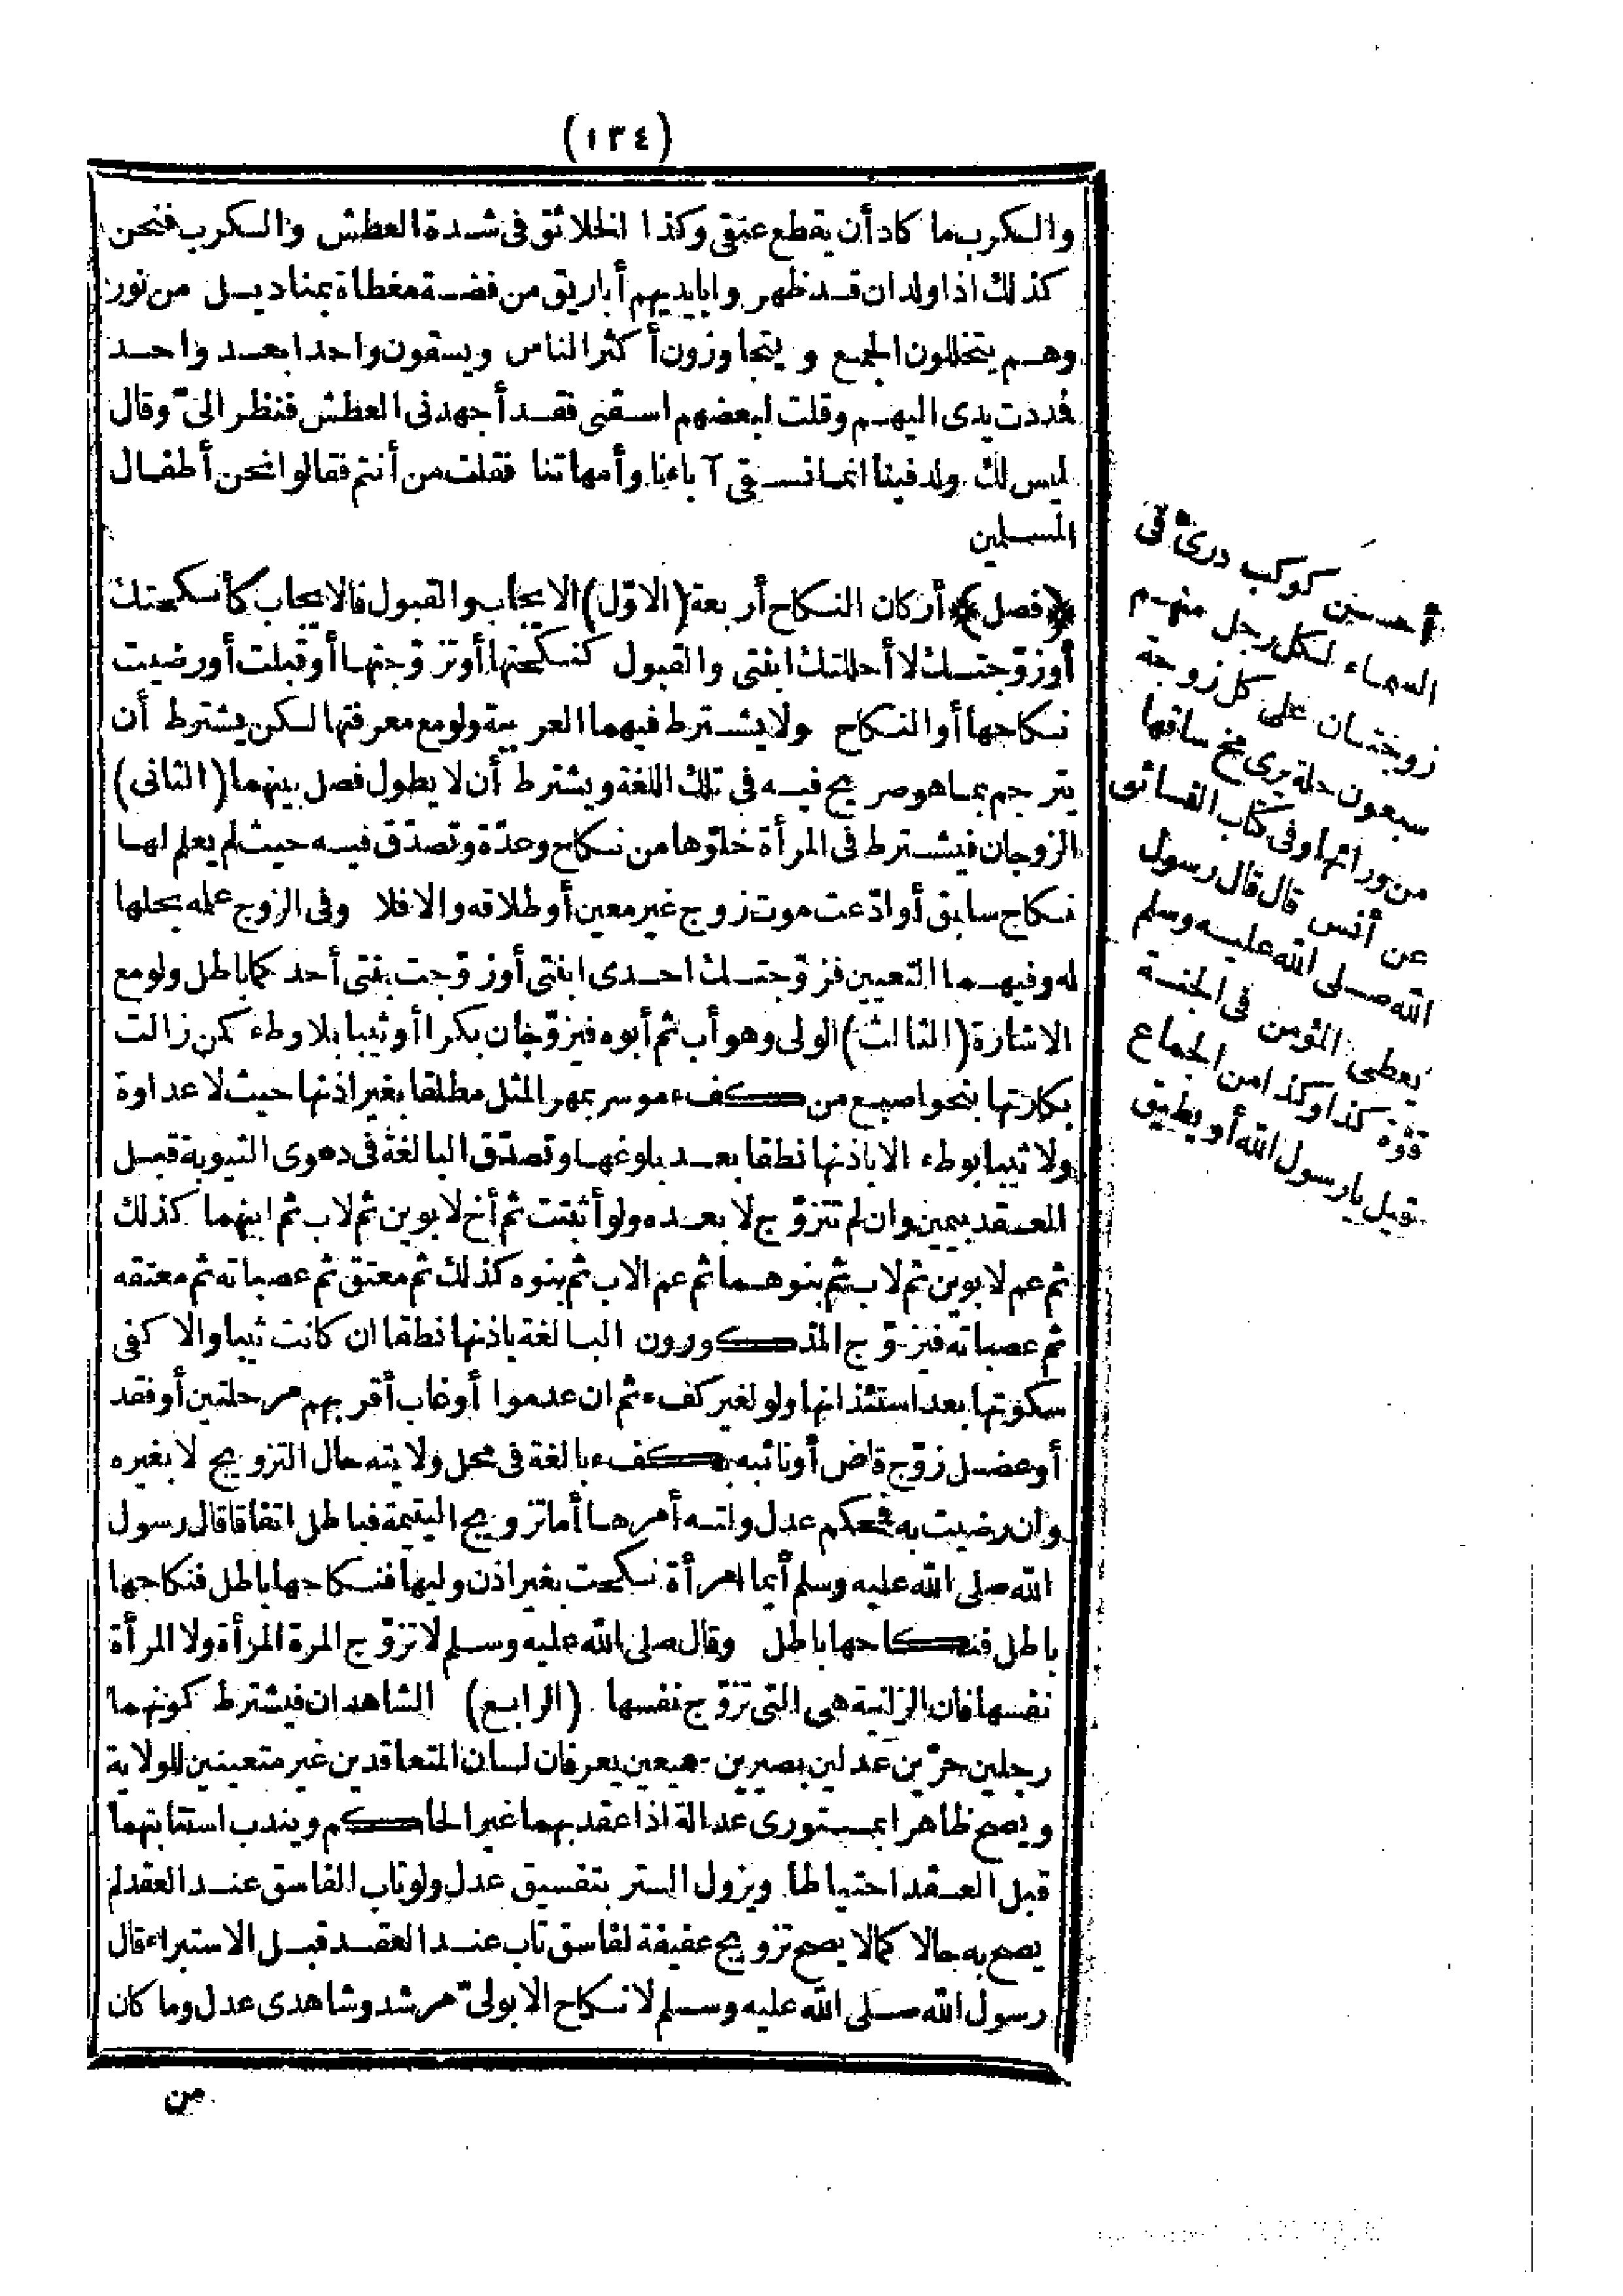 (١٣٤)
والكرب ما كاد أن يقطع عنقى وكذا الخلائق فى شدة العطش والكرب فنحن
كذلك اذا ولدان قد ظهروا بايديهم أباريق من فضة مغطاة بمناديل من نور
وهم يتخللون الجمع ويتجاوزون أكثر الناس ويسقون واحدا بعد واحد
فمددت يدى اليهم وقلت لبعضهم اسقنى فقد أجهدنى العطش فنظر الىّ وقال
ليس لك ولد فينا انما نسقى آباءنا وأمهاتنا فقلت من أنتم فقالوا نحن أطفال
المسلمين
﴿فصل﴾ أركان النكاح أربعة (الاوّل) الايجاب والقبول فالايجاب كأنكحتك
أو زوّجتك لا أحللتك ابنتى والقبول كنكحتها أو تزوّجتها أو قبلت أو رضيت
نكاحها أو النكاح ولا يشترط فيهما العربية ولو مع معرفتها لكن يشترط أن
يترجم بما هو صريح فيه فى تلك اللغة ويشترط أن لا يطول فصل بينهما (الثانى)
الزوجان فيشترط فى المرأة خلوّها من نكاح وعدّة وتصدّق فيه حيث لم يعلم لها
نكاح سابق أو ادّعت موت زوج غير معين أو طلاقه والا فلا وفى الزوج علمه بحلها
له وفيهما التعيين فزوّجتك احدى ابنتى أو زوّجت بنتى أحدكما باطل ولو مع
الاشارة (الثالث) الولى وهو أب ثم أبوه فيزوّجان بكرا أو ثيبا بلا وطء كمن زالت
بكارتها بنحو اصبع من كفء موسر بمهر المثل مطلقا بغير اذنها حيث لا عداوة
ولا ثيبا بوطء الا باذنها نطقا بعد بلوغها وتصدّق البالغة فى دعوى الثيوبة قبل
العقد بيمين وان لم تتزوّج لا بعده ولو أثبتت ثم أخ لابوين ثم لاب ثم ابنهما كذلك
ثم عم لابوين ثم لاب ثم بنوهما ثم عم الاب ثم بنوه كذلك ثم معتق ثم عصباته ثم معتقه
ثم عصباته فيزوّج المذكورون البالغة باذنها نطقا ان كانت ثيبا والا كفى
سكوتها بعد استئذانها ولو لغير كفء ثم ان عدموا أو غاب أقربهم مرحلتين أو فقد
أو عضل زوّج قاض أو نائبه بكفء بالغة فى محل ولايته حال التزويج لا بغيره
وان رضيت به فمحكم عدل ولته أمرها أما تزويج اليتيمة فباطل اتفاقا قال رسول
الله صلى الله عليه وسلم أيما امرأة نكحت بغير اذن وليها فنكاحها باطل فنكاحها
باطل فنكاحها باطل وقال صلى الله عليه وسلم لا تزوّج المرة المرأة ولا المرأة
نفسها فان الزانية هى التى تزوّج نفسها (الرابع) الشاهدان فيشترط كونهما
رجلين حرّين عدلين بصيرين سميعين يعرفان لسان المتعاقدين غير متعينين للولاية
ويصح ظاهرا بمستورى عدالة اذا عقد بهما غير الحاكم ويندب استتابتهما
قبل العقد احتياطا ويزول الستر بتفسيق عدل ولو تاب الفاسق عند العقد لم
يصح به حالا كما لا يصح تزويج عفيفة لفاسق تاب عند العقد قبل الاستبراء قال
رسول الله صلى الله عليه وسلم لا نكاح الا بولىّ مرشد وشاهدى عدل وما كان
من
أحسن كوكب درىّ فى
السماء لكل رجل منهم
زوجتان على كل زوجة
سبعون حلة يرى مخ ساقها
من ورائها وفى كتاب النسائى
عن أنس قال قال رسول
الله صلى الله عليه وسلم
يعطى المؤمن فى الجنة
قوّة كذا وكذا من الجماع
قيل يا رسول الله أو يطيق